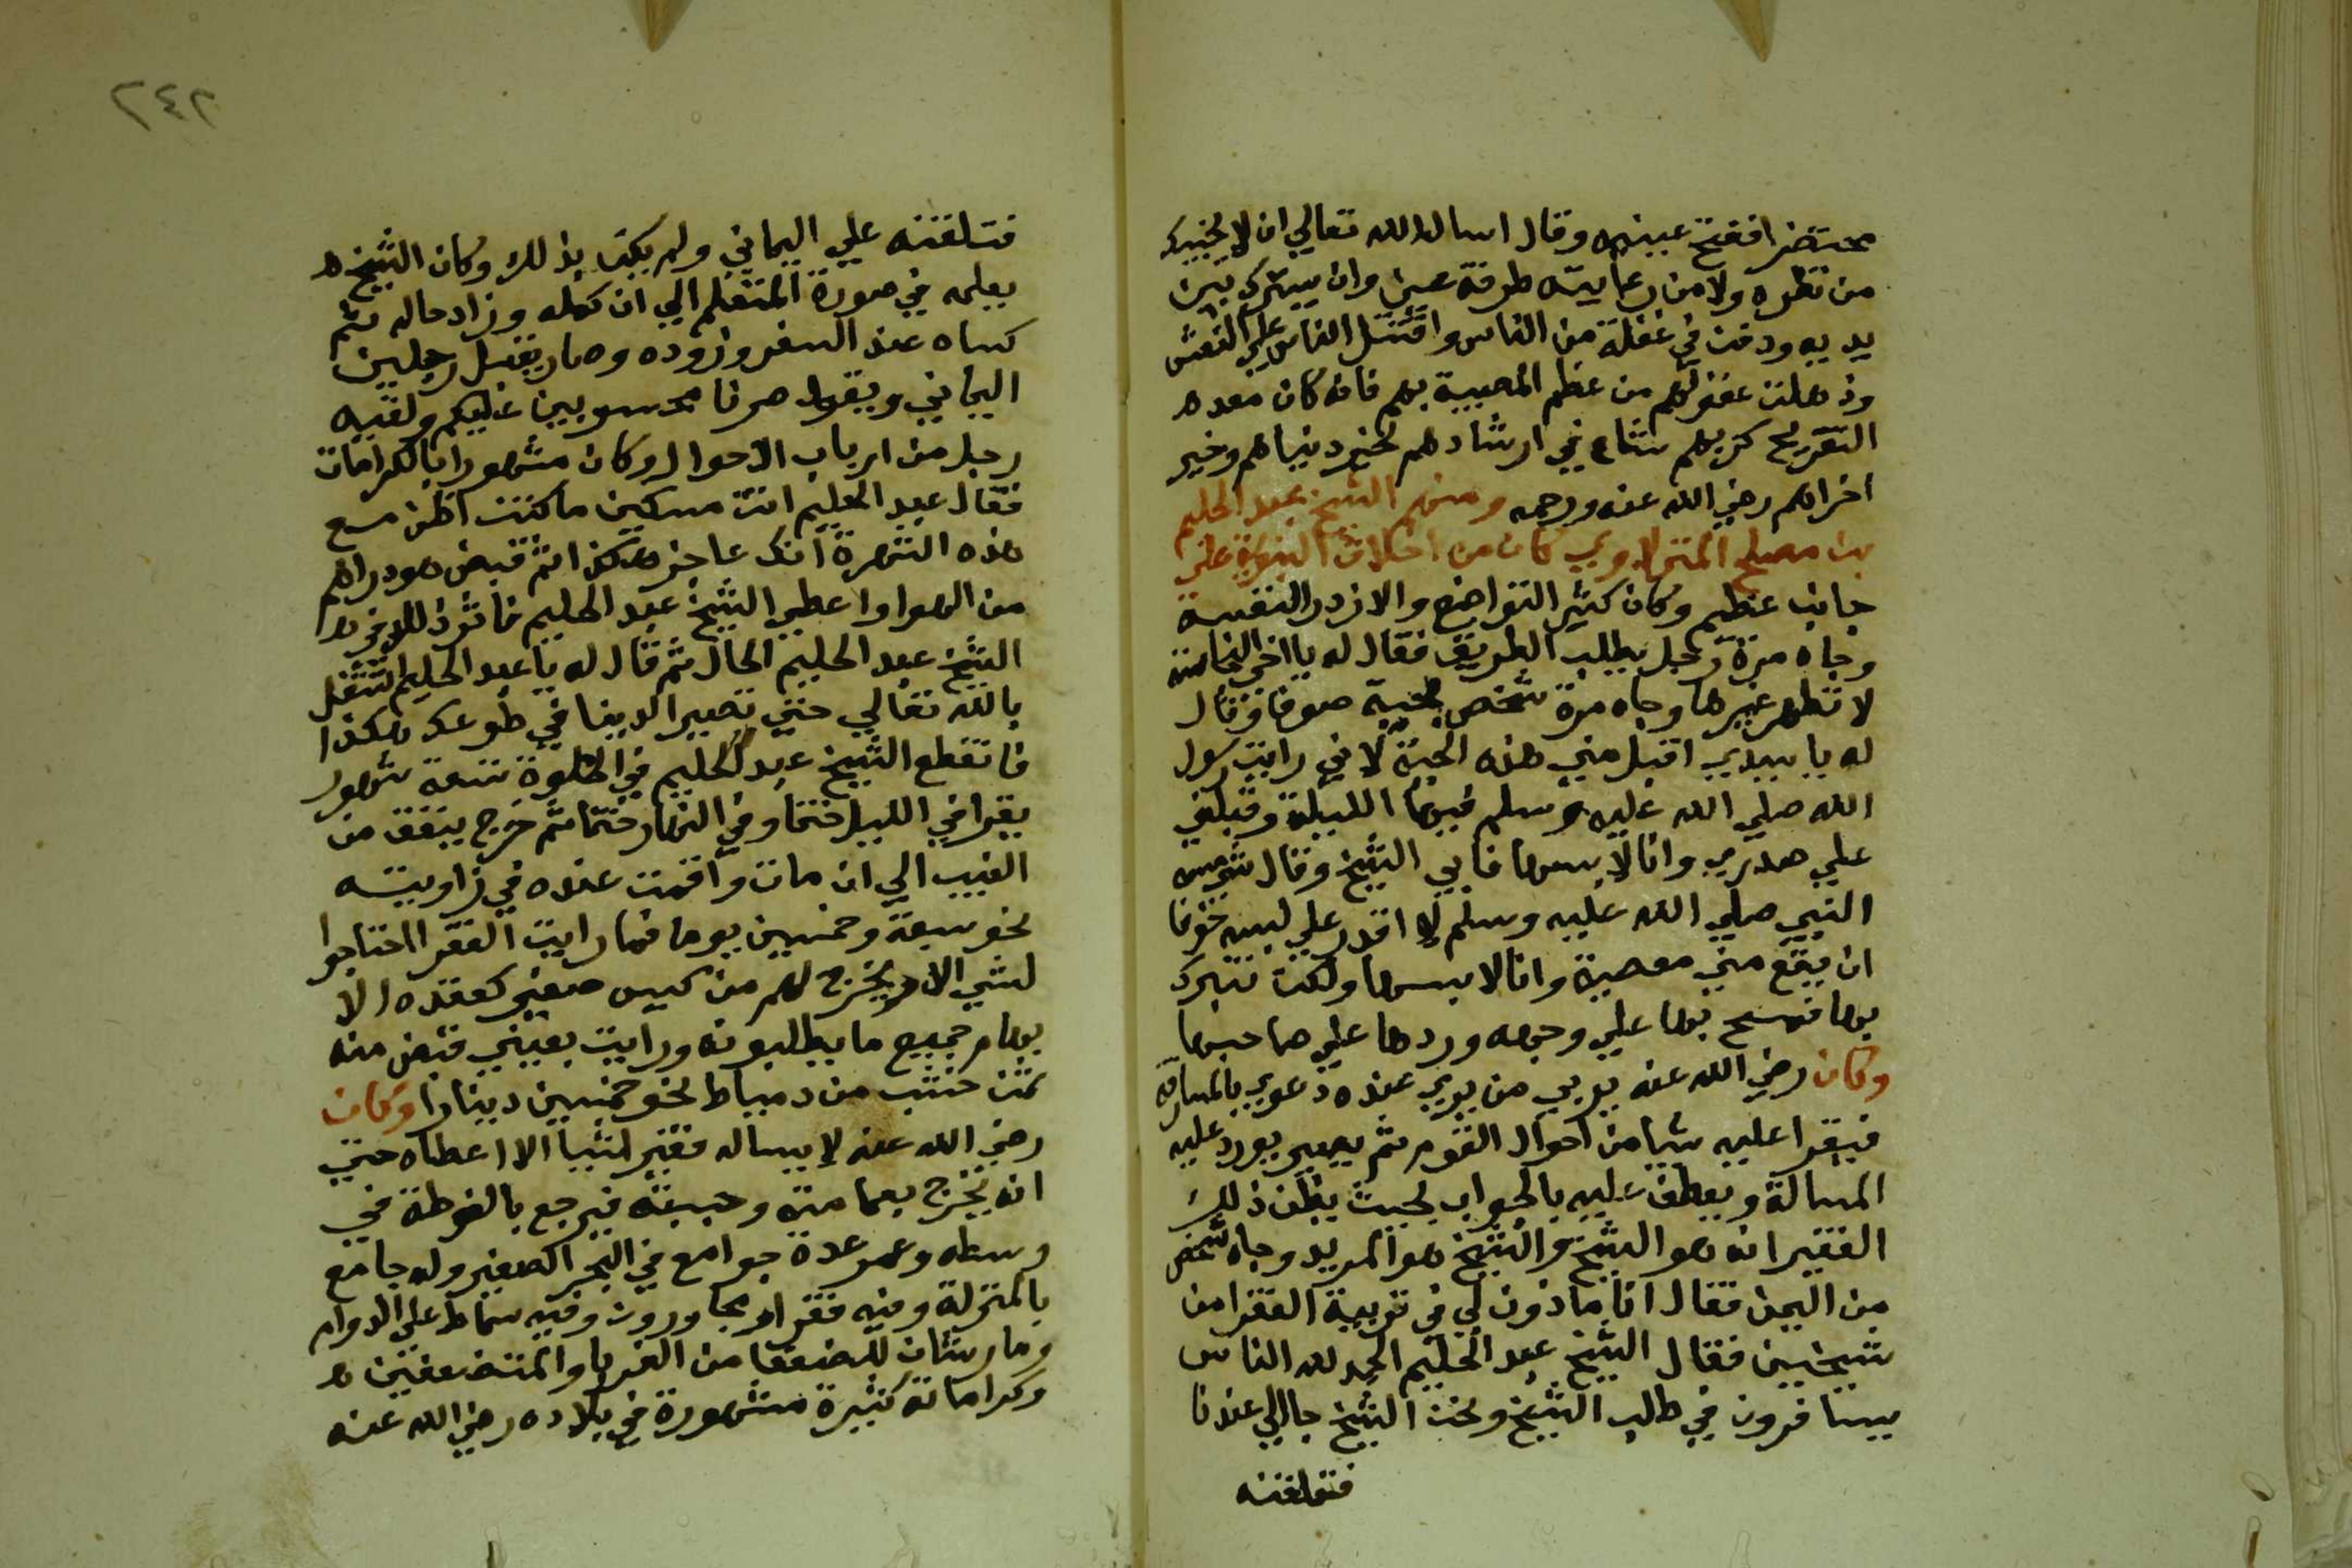 محتضرا ففتح عينيه وقال اسال الله تعالي ان لا يخيبك
من نظره ولا من رعايته طرفة عين وان يسترك بين
يديه ودفن في غفلة من الناس واقتتل الناس علي النعش
وذهلت عقولهم من عظم المصيبة بهم فانه كان معدهم
التفريج كربهم ساع في ارشادهم لخير دنياهم وخير
اخراهم رضي الله عنه ورحمه ومنهم الشيخ عبد الحليم
بن مصلح المنزلاوي كان من اخلاق النبوة علي
جانب عظيم وكان كثير التواضع والازدر النفسه
وجاه مرة رجل يطلب الطريق فقال له يا اخي النجاسة
لا تطهر غيرها وجاه مرة شخص بجبة صوف وقال
له يا سيدي اقبل مني هذه الجبة لاني رايت رسول
الله صلي الله عليه وسلم فيها الليلة وقبلني
علي صدري وانا لابسها فابي الشيخ وقال شي مسه
النبي صلي الله عليه وسلم لا اقدر علي لبسه خوفا
ان يقع مني معصية وانا لابسها ولكن نتبرك
بها فمسح بها علي وجهه وردها علي صاحبها
وكان رضي الله عنه يربي من يري عنده دعوي بالمسارقة
فيقرا عليه شيا من احوال القوم ثم يصير يورد عليه
المسالة ويعطف عليه بالجواب بحيث يظن ذلك
الفقير انه هو الشيخ والشيخ هو المريد وجاه شخص
من اليمن فقال انا ماذون لي في تربية الفقرا من
شيخي فقال الشيخ عبد الحليم الحمد لله الناس
يسافرون في طلب الشيخ ونحن الشيخ جا الي عندنا
فتلقنه
٢٤٢
فتلقنه علي اليماني ولم يكن بذلك وكان الشيخ
يعلمه في صورة المتعلم الي ان كمله وزاد حاله ثم
كساه عند السفر وزوده وصار يقبل رجلين
اليماني ويقول صرنا محسوبين عليكم ولقيه
رجل من ارباب الاحوال وكان مشهورا بالكرامات
فقال عبد الحليم انت مسكين ما كنت اظن مع
هذه الشهرة انك عاجز هكذا ثم قبض هو دراهم
من الهوا واعطي الشيخ عبد الحليم فاثر ذلك في
الشيخ عبد الحليم الحال ثم قال له يا عبد الحليم اشتغل
بالله تعالي حتي تصير الدنيا في طوعك هكذا
فانقطع الشيخ عبد الحليم في الخلوة تسعة شهور
يقرا في الليل ختما وفي النهار ختما ثم خرج ينفق من
الغيب الي ان مات واقمت عنده في زاويته
نحو سبعة وخمسين يوما فما رايت الفقرا احتاجوا
لشي الا ويخرج لهم من كيس صغير كعقدة الا
بهام جميع ما يطلبونه ورايت بعيني قبض منه
ثمن خشب من دمياط نحو خمسين دينارا وكان
رضي الله عنه لا يساله فقير شيا الا اعطاه حتي
انه يخرج بعمامته وجبته فيرجع بالفوطة في
وسطه وعمر عدة جوامع في البحر الصغير وله جامع
بالمنزلة وفيه فقرا مجاورون وفيه سماط علي الدوام
ومارستان للضعفا من الغربا والمستضعفين
وكراماته كثيرة مشهورة في بلاده رضي الله عنه